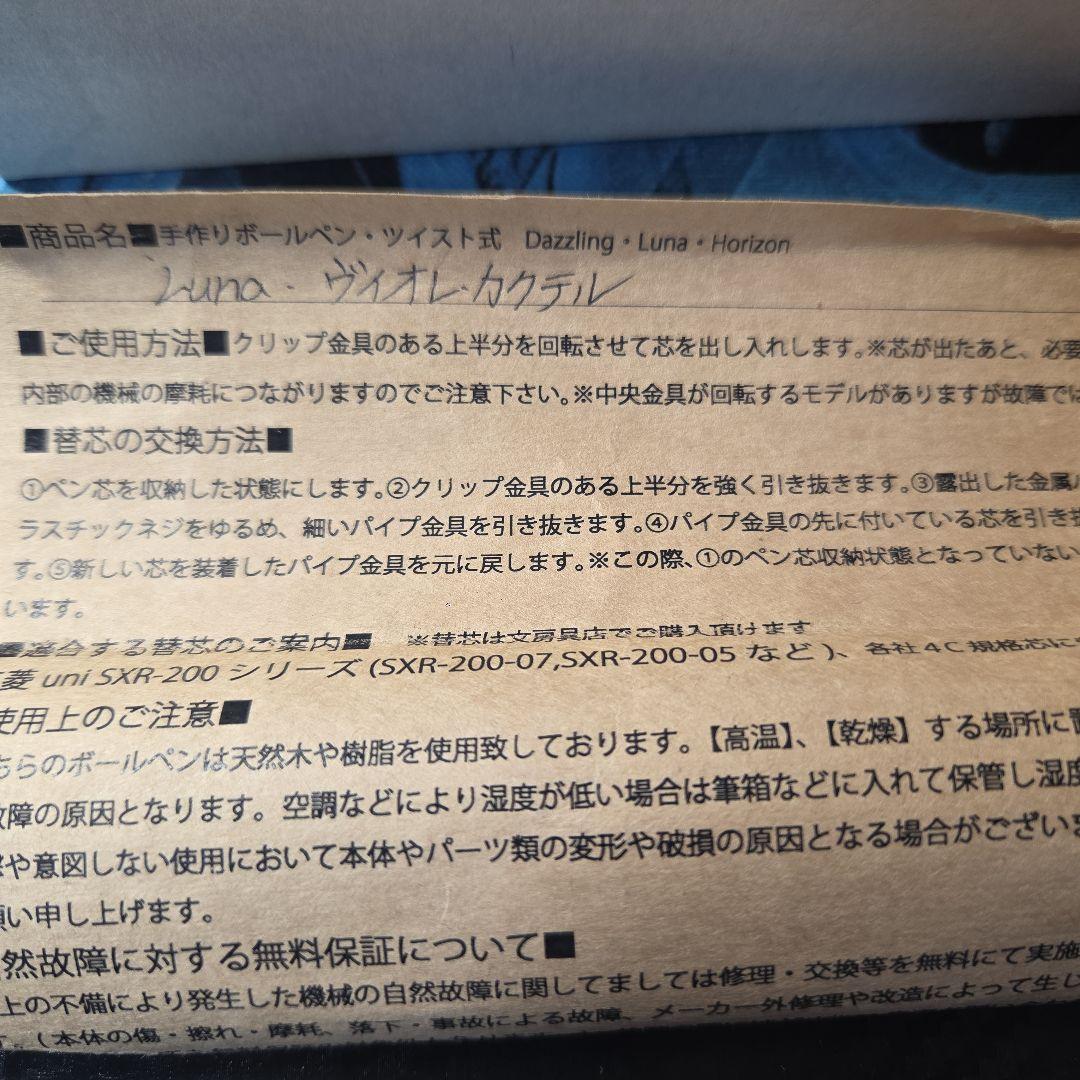 ■商品名■手作りボールペン・ツイスト式 Dazzling・Luna・Horizon
Luna・ヴィオレ・カクテル
■ご使用方法■クリップ金具のある上半分を回転させて芯を出し入れします。※芯が出たあと、必要
内部の機械の摩耗につながりますのでご注意下さい。※中央金具が回転するモデルがありますが故障では
■替芯の交換方法■
①ペン芯を収納した状態にします。②クリップ金具のある上半分を強く引き抜きます。③露出した金属
ラスチックネジをゆるめ、細いパイプ金具を引き抜きます。④パイプ金具の先に付いている芯を引き抜
す。⑤新しい芯を装着したパイプ金具を元に戻します。※この際、①のペン芯収納状態となっていない
います。
■適合する替芯のご案内■ ※替芯は文房具店でご購入頂けます
菱 uni SXR-200 シリーズ (SXR-200-07,SXR-200-05 など)、各社4C規格芯に
使用上のご注意■
ちらのボールペンは天然木や樹脂を使用致しております。【高温】、【乾燥】する場所に置
故障の原因となります。空調などにより湿度が低い場合は筆箱などに入れて保管し湿度
や意図しない使用において本体やパーツ類の変形や破損の原因となる場合がございま
願い申し上げます。
然故障に対する無料保証について■
上の不備により発生した機械の自然故障に関してましては修理・交換等を無料にて実施
す。(本体の傷・擦れ・摩耗、落下・事故による故障、メーカー外修理や改造によって生じ